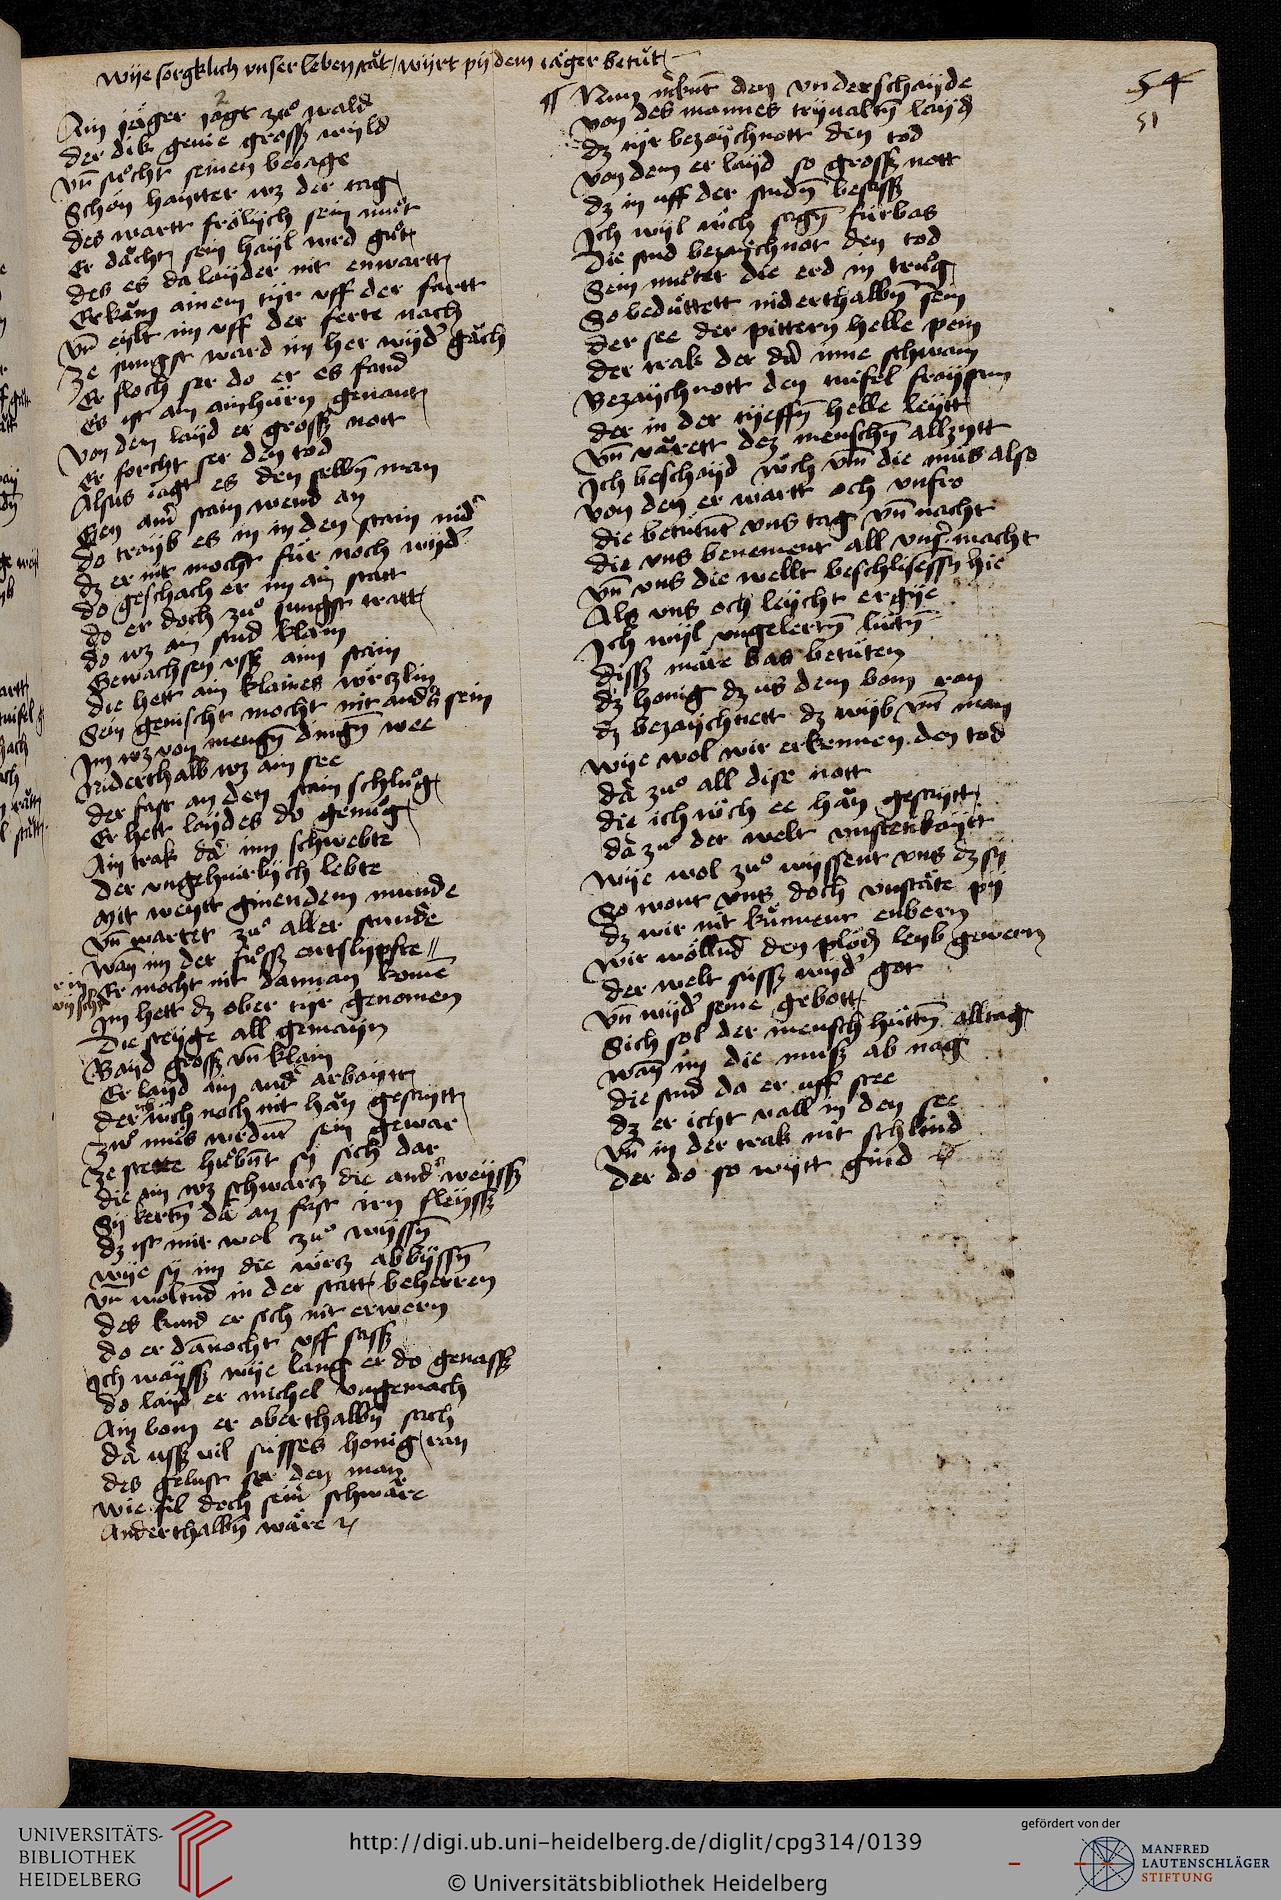 wije sorgklich vnser leben stǎt / wijrt pij dem iǎger betüt
54
51
Ain jǎger jagt zuͦ wald
der dik geuie grossz wyld
vn̄ suͦcht seinen beiage
Schön haytter wz der tag
des wartt frölijch sein muͦt
Er dǎcht sein hayl wrd guͦt
des es da laijder nit enwartt
Er kǎm ainem tijr vff der fartt
vn̄ eylt im vff der ferte nach
Ze jungst ward im her wijdˀ gǎch
Er floch ser do er es fand
Es ist ain ainhürn genant
von dem layd er grossz nott
Er forcht ser den tod
Alsus iagt es den selbn̄ man
Gen aınˀ stain wend an
do traijb es in in den stain nidˀ
dz er nit mocht für noch wijdˀ
do geschach er im ain statt
do er doch zuͦ jungst tratt
do wz ain stud klain
Gewachsen vssz aim stain
die hett ain klaines würczlin
Sein genischt mocht nit andˀs sein
Im wz von mengn̄ dingn̄ wee
Niderthalb wz ain see
der fast an den stain schluͦg
Er hett laydes do genuͦg
Ain trak dǎ inn schwebte
der vngehuirlijch lebte
Mit weytt ginendem munde
vn̄ wartet zuͦ aller stunde
wan̄ im der fuͦssz entslypfte //
Er mocht nit dannan komē
Im hett dz ober tijr genomen
die steijge all gemayn
Bayd grossz vn̄ klain
Er layd ain andˀ arbaytt
der ich üch noch nit hǎn gesaytt
Zwo müs wrdūt sein gewar
Ze stette huͦbn̄t sy sich dar
die ain wz schwarz die andˀ weijssz
Sij kertn̄ dǎ an fast irn fleijssz
dz ist mir wol zuͦ wijssn̄
wije sij im die würcz abbijssn̄
vn̄ woltūd in der statt beherren
des kund er sich nit erwern
do er dānocht vff sassz
Ich wayssz wije lang er do genassz
do layd er michel vngemach
Ain bom er oberthalbn̄ sach
dǎ ussz vil süsses honig ran
des gelust ser den man
wie fil doch seinˀ schwǎre
Anderthalbn̄ wǎre
Nun mˀknt den vnderschayde
von des mannes trijualtn̄ layd
dz tijr bezaychnott den tod
von dem er layd so grossz nott
dz in vff der studn̄ besassz
Ich wijl üch sagn̄ fürbas
die stud bezaychnot den tod
Sein muͦter die erd in truͦg
So bedüttett niderthalbn̄ sein
der see der pittern helle pein
der trak der dǎ inne schwam
Bezaychnott den tuifel fraijsam
der in der tijeffn̄ helle leytt
vn̄ vǎrett dez menschn̄ allzytt
Ich beschayd üch vm̄ die mus also
von den er wartt och vnfro
die betütnt vns tag vn̄ nacht
die vns benement all vnsˀ macht
vn̄ vns die wellt beschliessn̄ hie
Als vns och leycht ergije
Ich wijl vngelertn̄ lütn̄
dissz mǎre bas betüten
dz honig dz us dem bom ran
dz bezaychnett dz wijb vn̄ man
wije wol wir erkennen den tod
dǎ zuͦ all dise nott
die ich üch ee hǎn gesaytt
dǎ zuͦ der welt vnstetikaytt
wije wol zuͦ wissent vns dz sij
So wont vns doch vnstǎte pij
dz wir nit künnent enbern
wir wöllnd den plöd leyb gewern
der welt süssz wijdˀ got
vn̄ wijdˀ seine gebott
Sich sol der mensch hüttn̄ alltag
wan̄ im die mussz ab nag
die stud da er uff stee
dz er icht vall in den see
vn̄ in der trak nit schlind
der do so wytt gind
UNIVERSITÄTS-
BIBLIOTHEK
HEIDELBERG
http://digi.ub.uni-heidelberg.de/diglit/cpg314/0139
© Universitätsbibliothek Heidelberg
gefördert von der
MANFRED
LAUTENSCHLÄGER
STIFTUNG